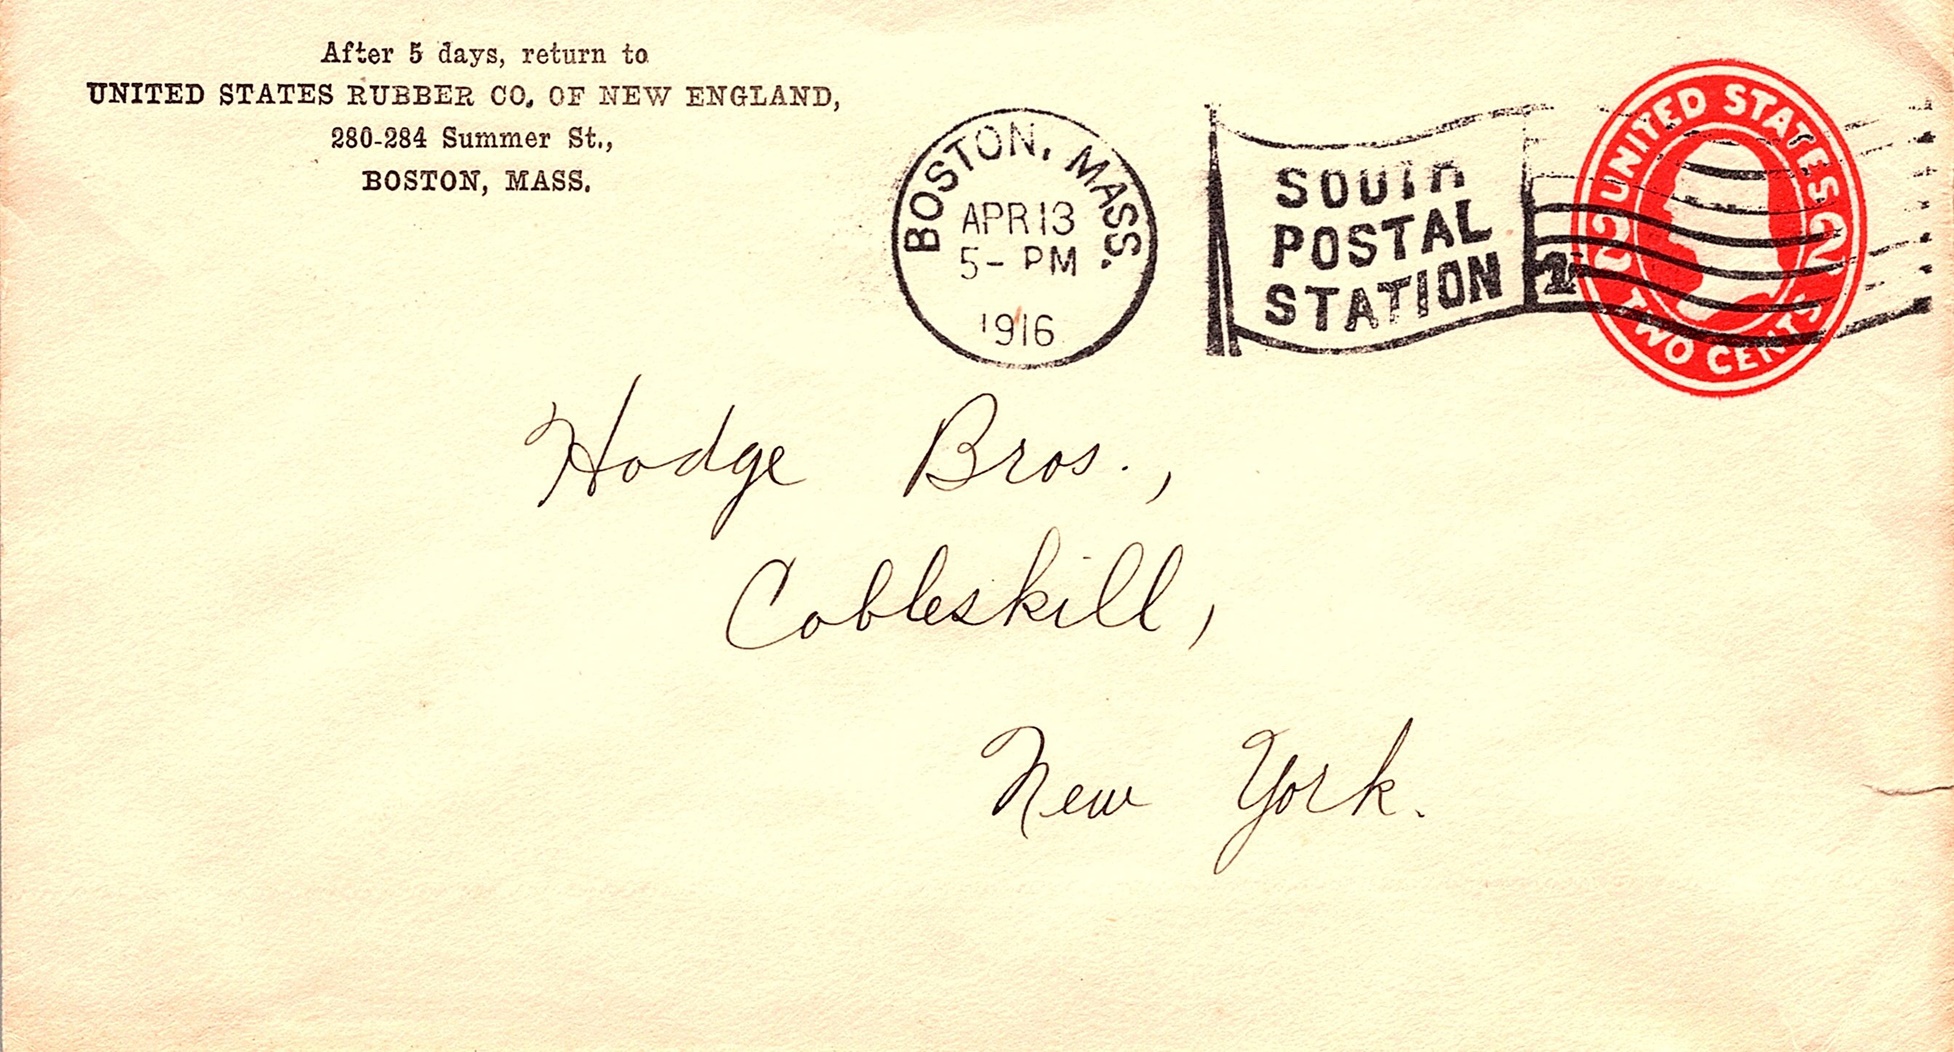 After 5 days, return to
UNITED STATES RUBBER CO. OF NEW ENGLAND,
280-284 Summer St.,
BOSTON, MASS.
BOSTON, MASS.
APR 13
5- PM
1916
SOUTH
POSTAL
STATION
1
UNITED STATES
2 2
TWO CENTS
Hodge Bros.,
Cobleskill,
New York.